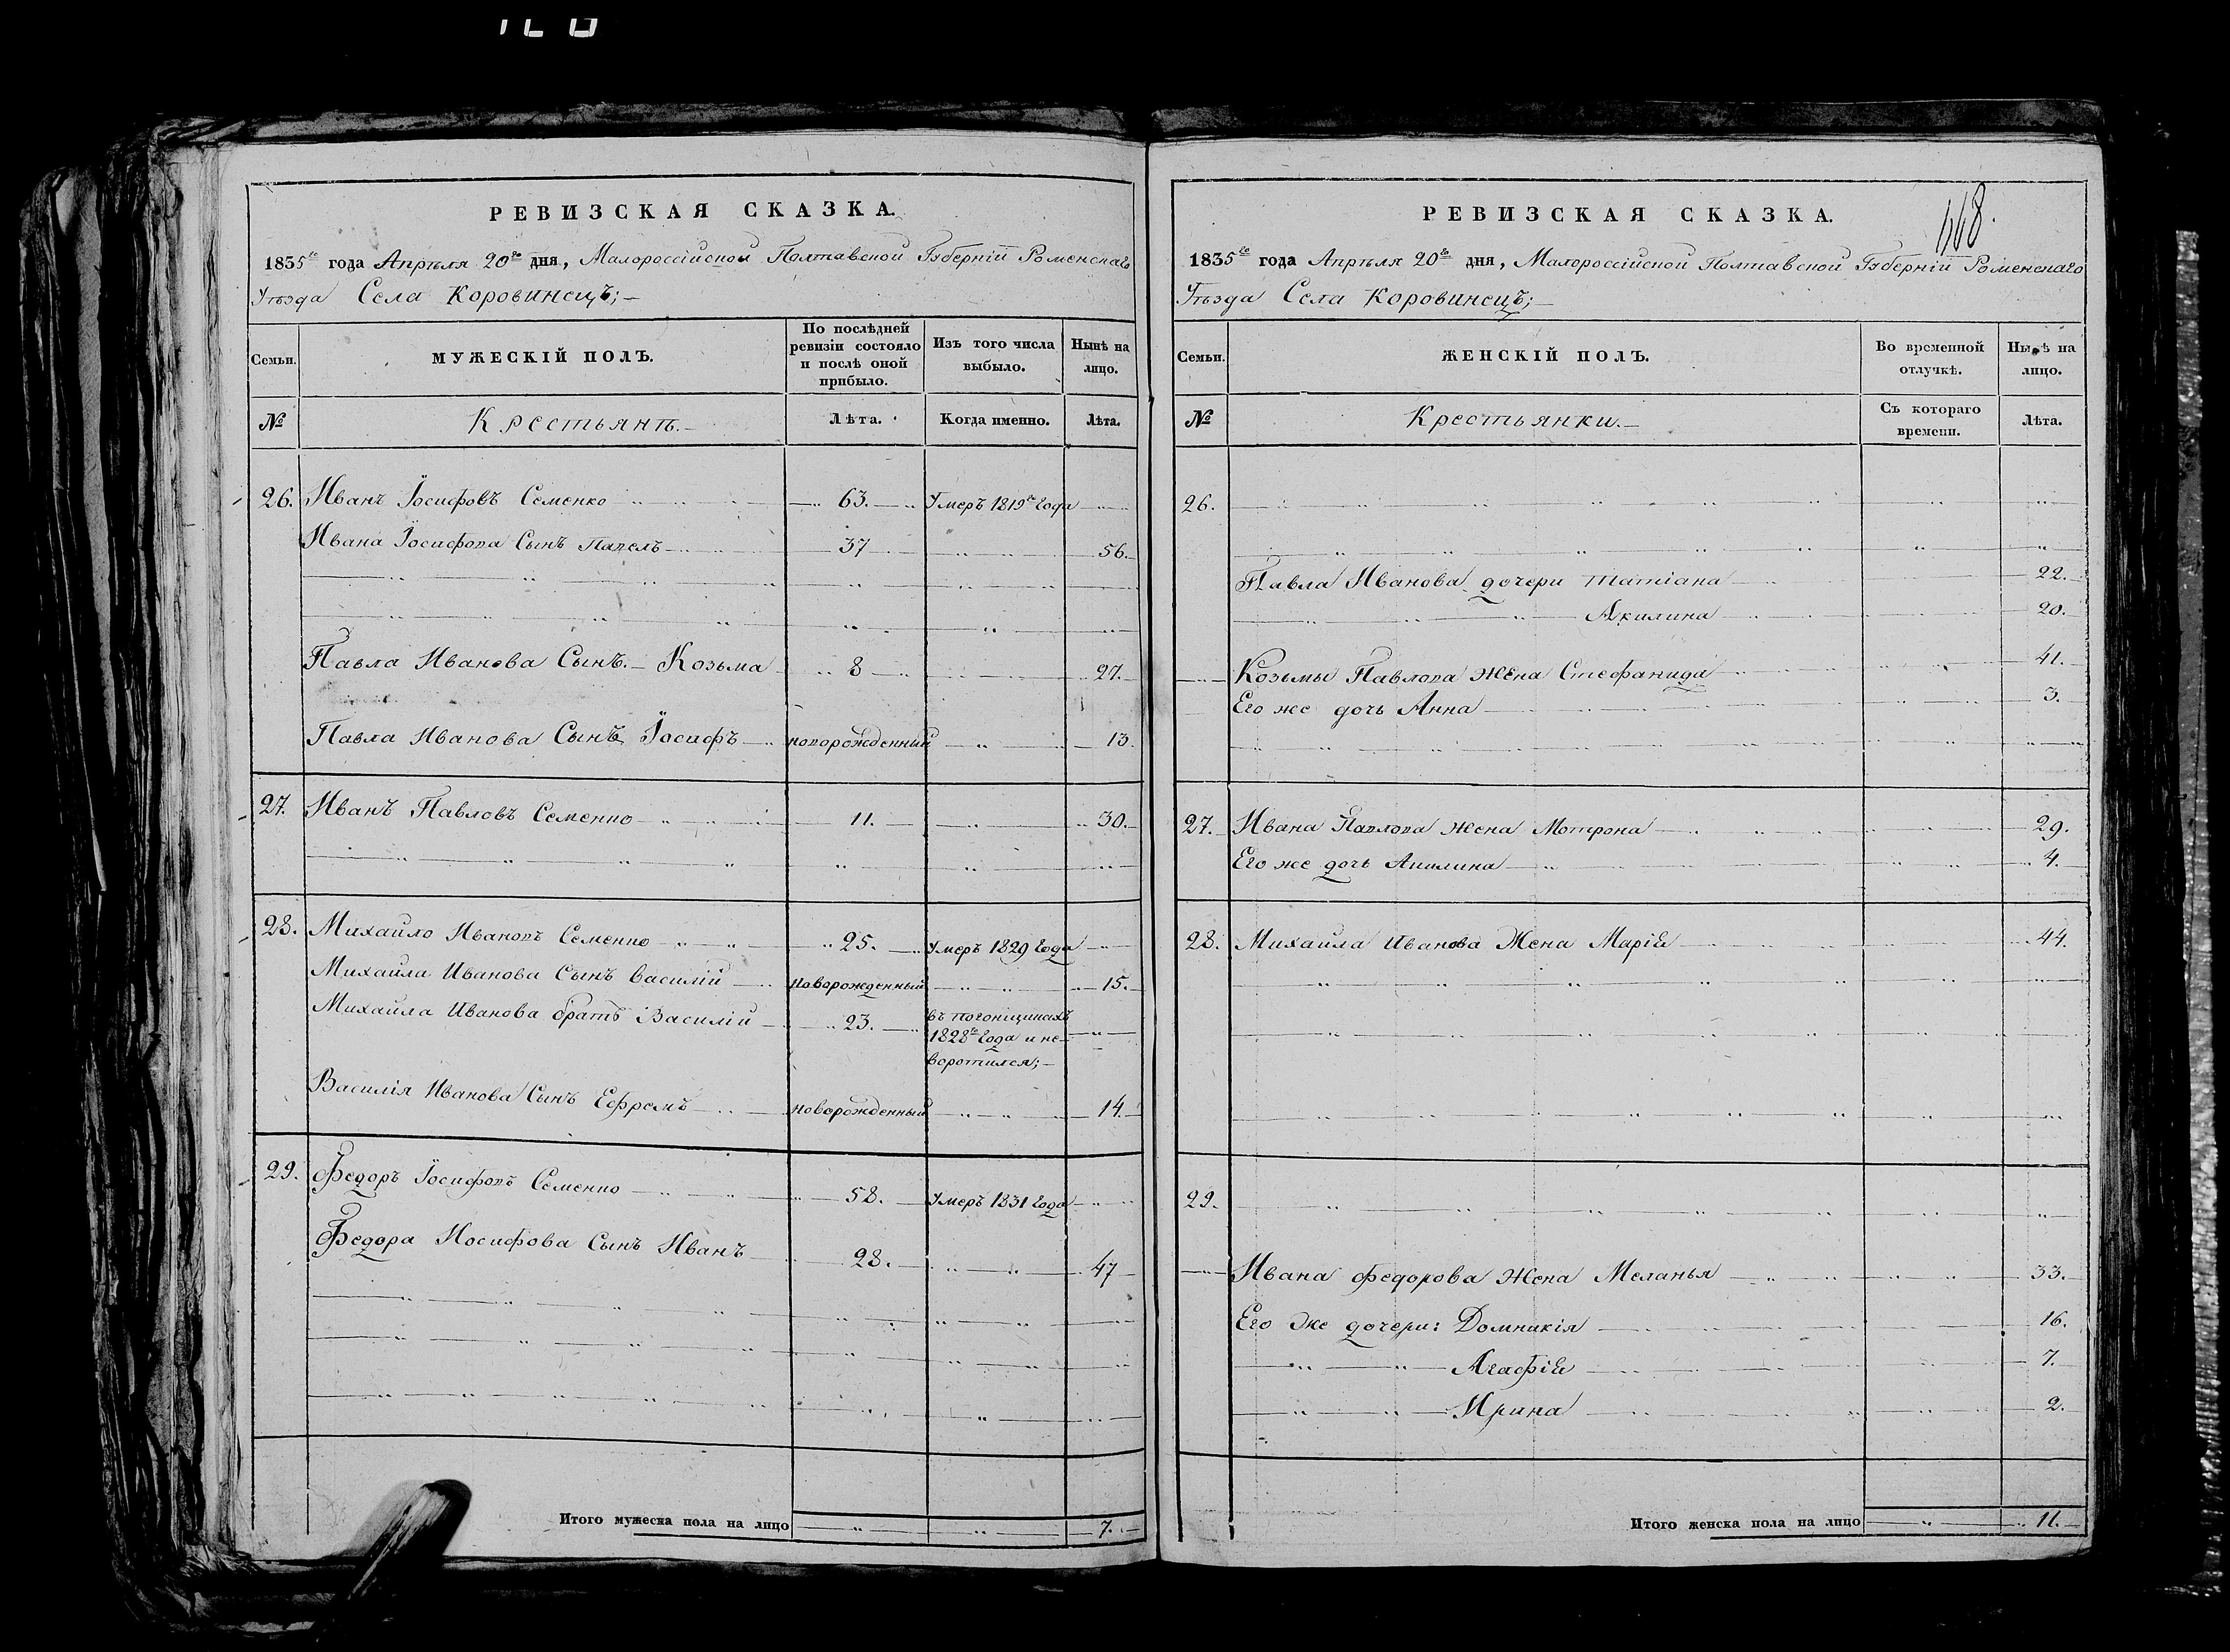 РЕВИЗСКАЯ СКАЗКА.
1835го года Апрѣля 20го дня, Малороссійской Полтавской Губерніи Роменскаго
Уѣзда Села Коровинецъ;
Семьи. МУЖЕСКІЙ ПОЛЪ. По послѣдней ревизіи состояло и послѣ оной прибыло. Изъ того числа выбыло. Нынѣ на лицо.
№ Крестьянъ. Лѣта. Когда именно. Лѣта.
26. Иванъ Іосифовъ Семенко 63. Умеръ 1819го года
Ивана Іосифова Сынъ Павелъ 37 56.
Павла Иванова Сынъ. Козьма 8 27.
Павла Иванова Сынъ Іосифъ новорожденный 13
27. Иванъ Павловъ Семенко 11. 30.
28. Михайло Ивановъ Семенко 25. Умеръ 1829 года
Михайла Иванова Сынъ Василій новорожденный 15.
Михайла Иванова братъ Василій 23. въ погонщикахъ
1828го года и не
воротился;
Василія Иванова Сынъ Ефремъ новорожденный 14.
29. Федоръ Іосифовъ Семенко 58. Умеръ 1831 года
Федора Иосифова Сынъ Иванъ 28. 47
Итого мужеска пола на лицо 7.
РЕВИЗСКАЯ СКАЗКА.
1835го года Апрѣля 20го дня, Малороссійской Полтавской Губерніи Роменскаго
Уѣзда Села Коровинецъ;
Семьи. ЖЕНСКІЙ ПОЛЪ. Во временной отлучкѣ. Нынѣ на лицо.
№ Крестьянки. Съ котораго времени. Лѣта.
26.
Павла Иванова дочери Татіана 22.
Акилина 20.
Козьмы Павлова жена Стефанида 41.
Его же дочь Анна 3.
27. Ивана Павлова жена Мотрона 29.
Его же дочь Акилина 4.
28. Михайла Иванова Жена Марія 44.
29.
Ивана Федорова жена Меланья 33.
Его же дочери: Домникія 16.
Агафія 7.
Ирина 2.
Итого женска пола на лицо 11.